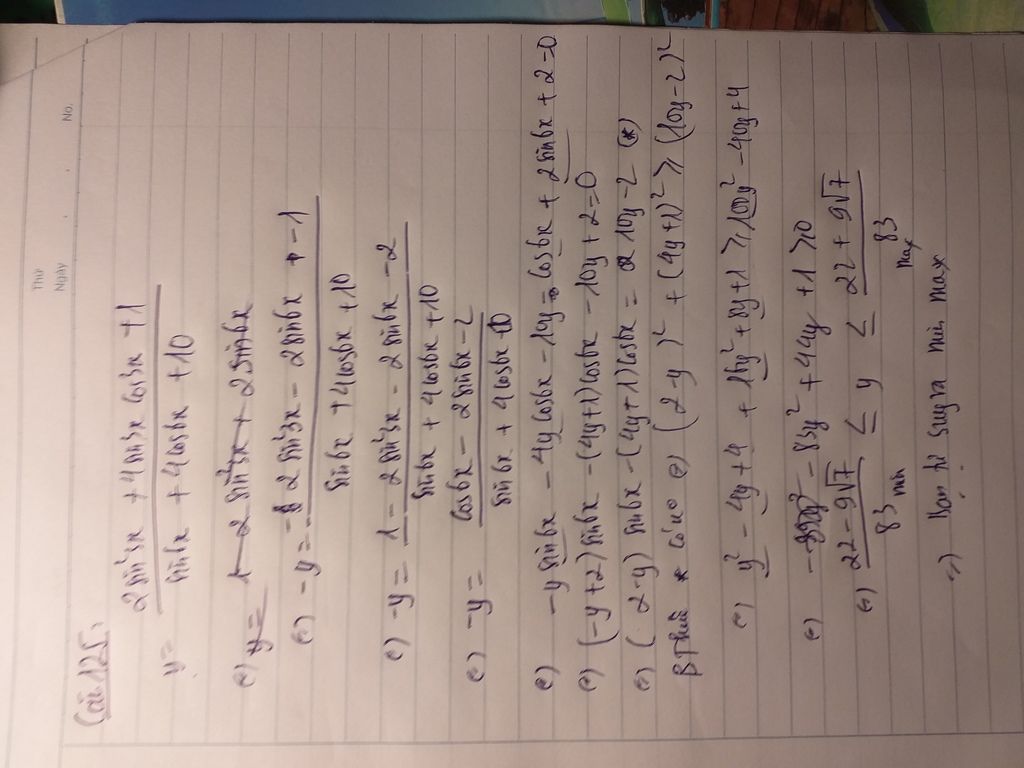 Thứ
Ngày
No.
Câu 125:
y = \frac{2 sin²3x + 4 sin3x cos3x + 1}{sin6x + 4cos6x + 10}
(=) y = 1 - 2 sin²3x + 2 sin6x
(=) -y = \frac{-2 sin²3x - 2 sin6x - 1}{sin6x + 4cos6x + 10}
(=) -y = \frac{1 - 2 sin²3x - 2 sin6x - 2}{sin6x + 4cos6x + 10}
(=) -y = \frac{cos6x - 2 sin6x - 2}{sin6x + 4cos6x + 10}
(=) -y sin6x - 4y cos6x - 10y = cos6x + 2 sin6x + 2 = 0
(=) (-y + 2) sin6x - (4y + 1) cos6x - 10y + 2 = 0
(=) (2 - y) sin6x - (4y + 1) cos6x = 10y - 2 (*)
* có no (=) (2 - y)² + (4y + 1)² ≥ (10y - 2)²
(=) y² - 4y + 4 + 16y² + 8y + 1 ≥ 100y² - 40y + 4
(=) - 83y² + 44y + 1 ≥ 0
(=) \frac{22 - 9√7}{83} ≤ y ≤ \frac{22 + 9√7}{83}
min max
=) suy ra min max